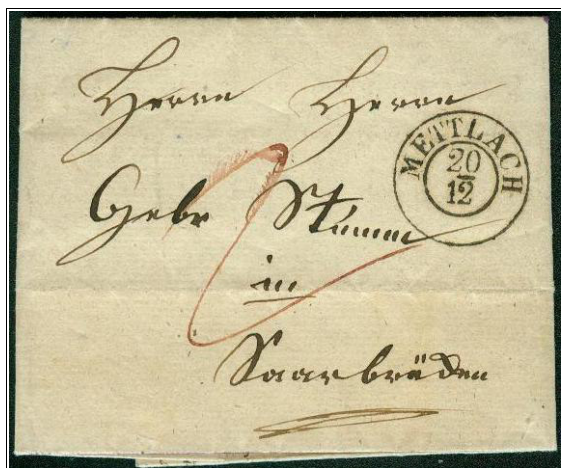 Herrn Herrn
METTLACH
20
12
Gebr Stumm
2
in
Saarbrücken